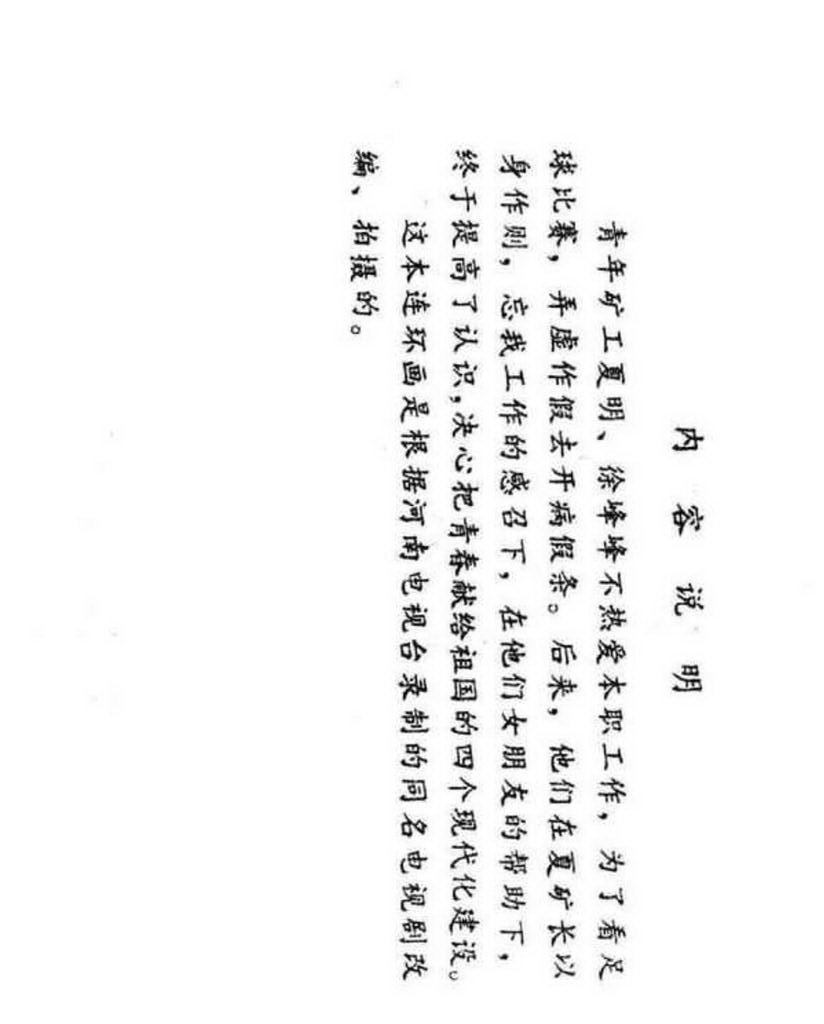 内容说明
青年矿工夏明、徐峰峰不热爱本职工作，为了看足
球比赛，弄虚作假去开病假条。后来，他们在夏矿长以
身作则，忘我工作的感召下，在他们女朋友的帮助下，
终于提高了认识，决心把青春献给祖国的四个现代化建设。
这本连环画是根据河南电视台录制的同名电视剧改
编、拍摄的。